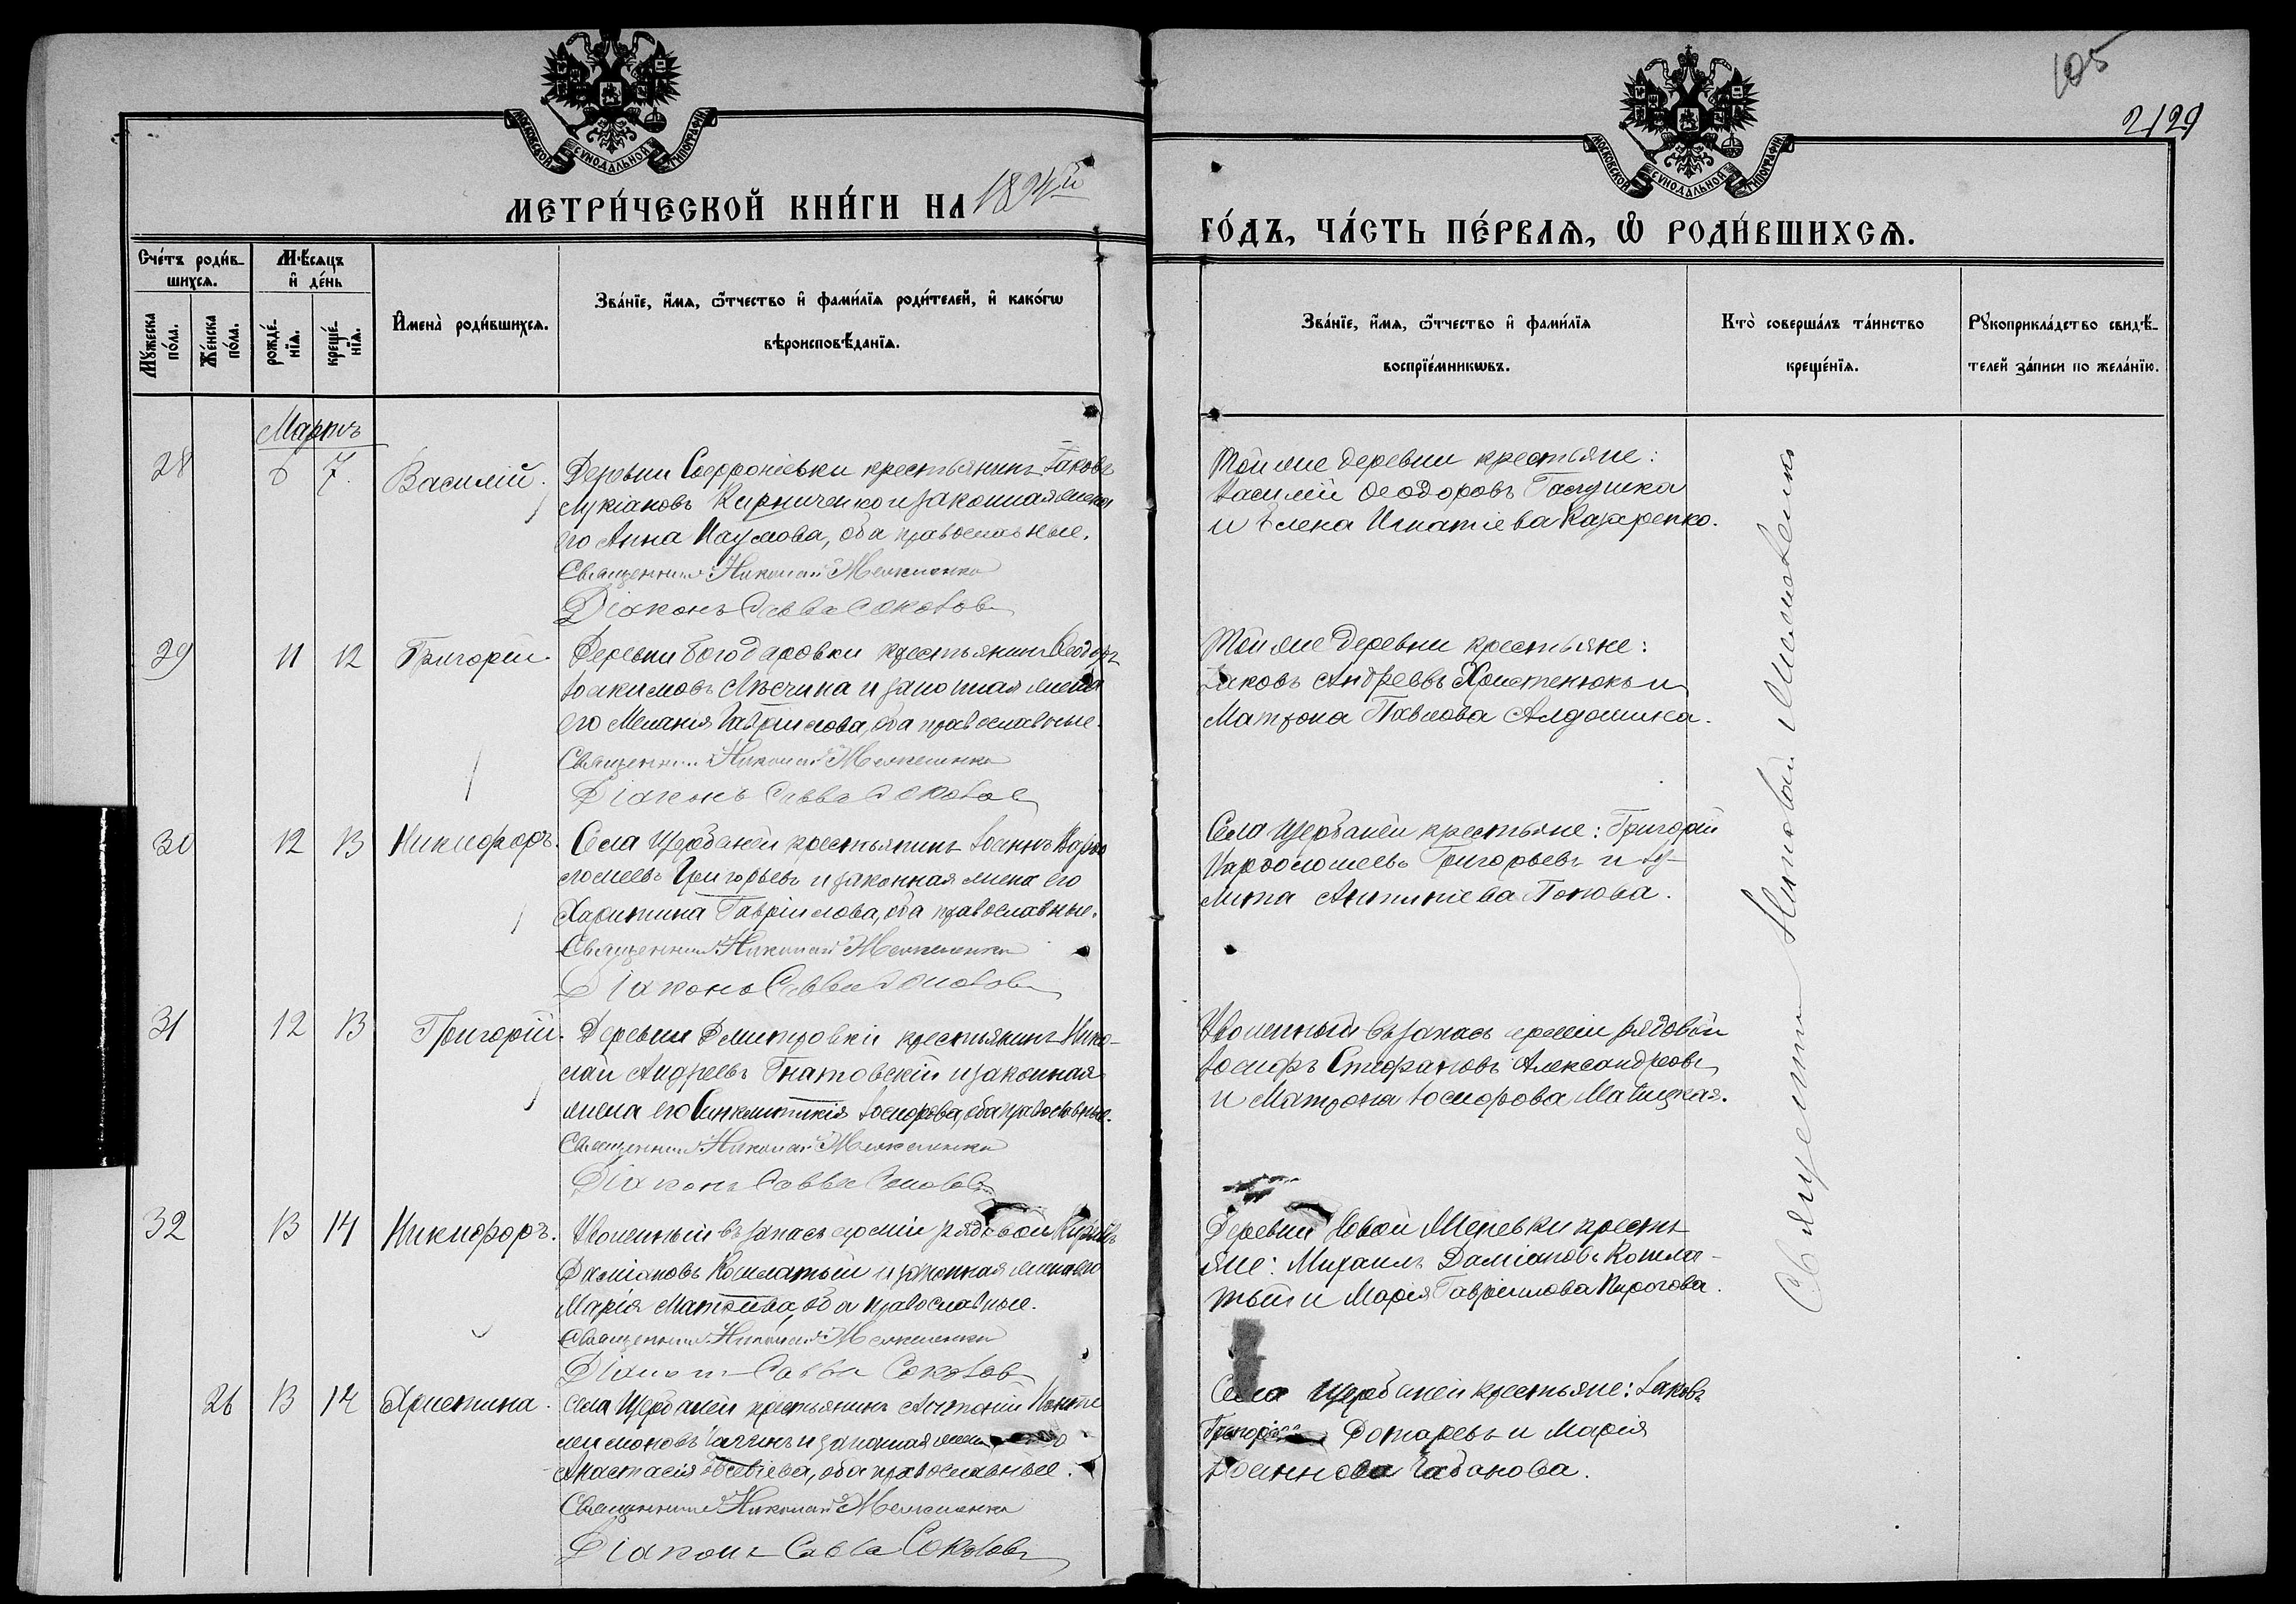 105
2129
МОСКОВСКОЙ СѴНОДАЛЬНОЙ ТИПОГРАФІИ
МОСКОВСКОЙ СѴНОДАЛЬНОЙ ТИПОГРАФІИ
МЕТРИ́ЧЕСКОЙ КНИ́ГИ НА 1894й
ГО́ДЪ, ЧА́СТЬ ПЕ́РВАѦ, Ѡ҆ РОДИ́ВШИХСѦ.
Сче́тъ роди́в-
шихсѧ.
Мꙋ́жеска по́ла.
Же́нска по́ла.
Мѣ́сѧцъ
и҆ де́нь
рожде́-нїѧ.
креще́-нїѧ.
И҆мена̀ роди́вшихсѧ.
Зва́нїе, и҆́мѧ, ѻ҆́тчество и҆ фами́лїѧ роди́телей, и҆ како́гѡ
вѣроисповѣ́данїѧ.
Зва́нїе, и҆́мѧ, ѻ҆́тчество и҆ фами́лїѧ
воспрїе́мникѡвъ.
Кто̀ соверша́лъ та́инство
креще́нїѧ.
Рꙋкоприкла́дство свидѣ́-
телей за́писи по жела́нїю.
Мартъ
28 6 7. Василій. Деревни Софроніевки крестьянинъ Іаковъ
Лукіановъ Кирниченко и законная жена
его Анна Наумова, оба православные.
Священникъ Николай
Діаконъ Савва Соколовъ
Той же деревни крестьяне:
Василій Ѳеодоровъ
и Елена Игнатіева Назаренко.
29 11 12 Григорій. Деревни Богодаровки крестьянинъ Ѳеодоръ
Іоакимовъ и законная жена
его Меланія Гавріилова, оба православные.
Священникъ Николай
Діаконъ Савва Соколовъ
Той же деревни крестьяне:
Іаковъ Андреевъ Христенюкъ и
Матрона Павлова
30 12 13 Никифоръ. Села Щербаней крестьянинъ Іоаннъ Варѳо
ломеевъ Григорьевъ и законная жена его
Харитина Гавріилова, оба православные.
Священникъ Николай
Діаконъ Савва Соколовъ
Села Щербаней крестьяне: Григорій
Варѳоломеевъ Григорьевъ и Іу-
литта Антипіева Попова.
31 12 13 Григорій. Деревни Дмитровки крестьянинъ Нико-
лай Андреевъ Гнатовскій и законная
жена его Синклитикія Іосифова, оба православные.
Священникъ Николай
Діаконъ Савва Соколовъ
Уволенный въ запасъ арміи рядовой
Іосифъ Стефановъ Александровъ
и Матрона Іосифова
32 13 14 Никифоръ. Уволенный въ запасъ арміи рядовой
Даміановъ Кошлатый и законная жена его
Марія Матѳіева, оба православные.
Священникъ Николай
Діаконъ Савва Соколовъ
Деревни Новой крестья
не: Михаилъ Даміановъ Кошла-
тый и Марія Гавріилова Пирогова.
26 13 14 Христина. Села Щербаней крестьянинъ Антоній Панте
леимоновъ и законная жена его
Анастасія Евсевіева, оба православные.
Священникъ Николай
Діаконъ Савва Соколовъ
Села Щербаней крестьяне: Іаковъ
и Марія
Іоаннова Чабанова.
Священникъ Николай